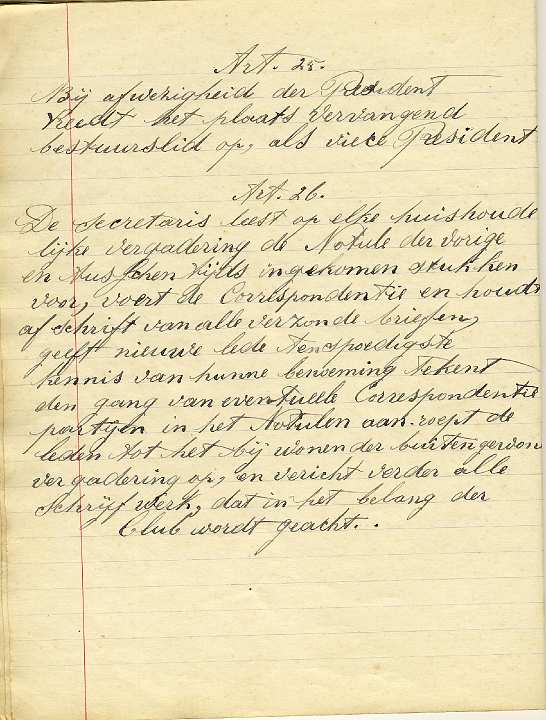 Art. 25.
Bij afwezigheid der President
treedt het plaats vervangend
bestuurslid op, als vice President
Art. 26.
De secretaris leest op elke huishoude
lijke vergadering de Notule der vorige
en tusschen tijds ingekomen stukken
voor, voert de Correspondentie en houdt
af schrift van alle verzonde brieven,
geeft nieuwe lede tenspoedigste
kennis van hunne benoeming tekent
den gang van eventueele Correspondentie
partijen in het Notulen aan. roept de
leden tot het bij wonen der buitengewon
vergadering op, en vericht verder alle
schrijf werk, dat in het belang der
Club wordt geacht. .